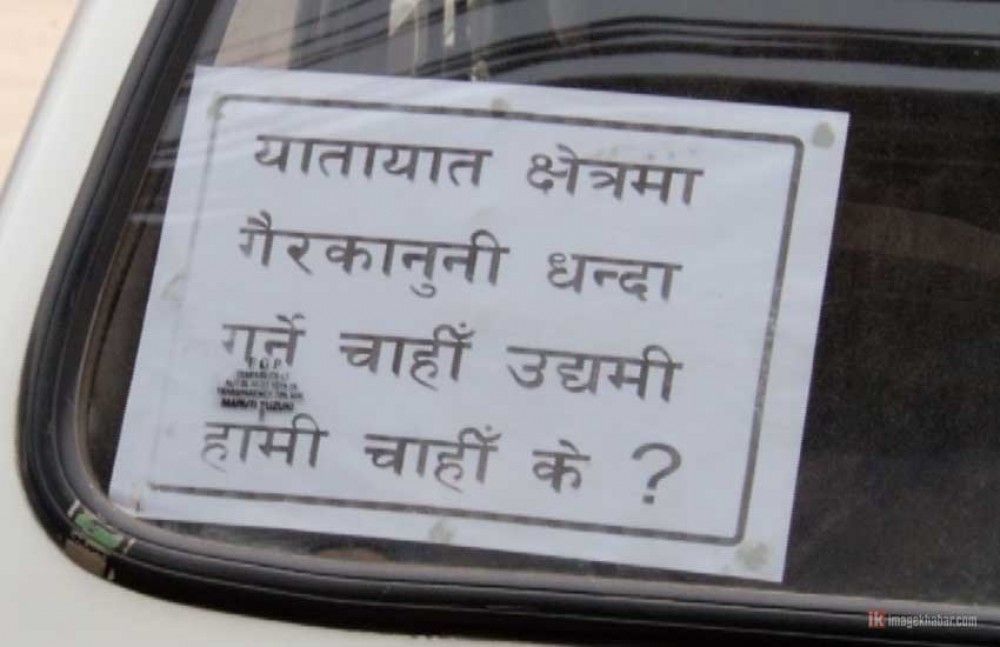 यातायात क्षेत्रमा
गैरकानुनी धन्दा
गर्ने चाहीँ उद्यमी
हामी चाहीँ के ?
MARUTI SUZUKI
ik imagekhabar.com